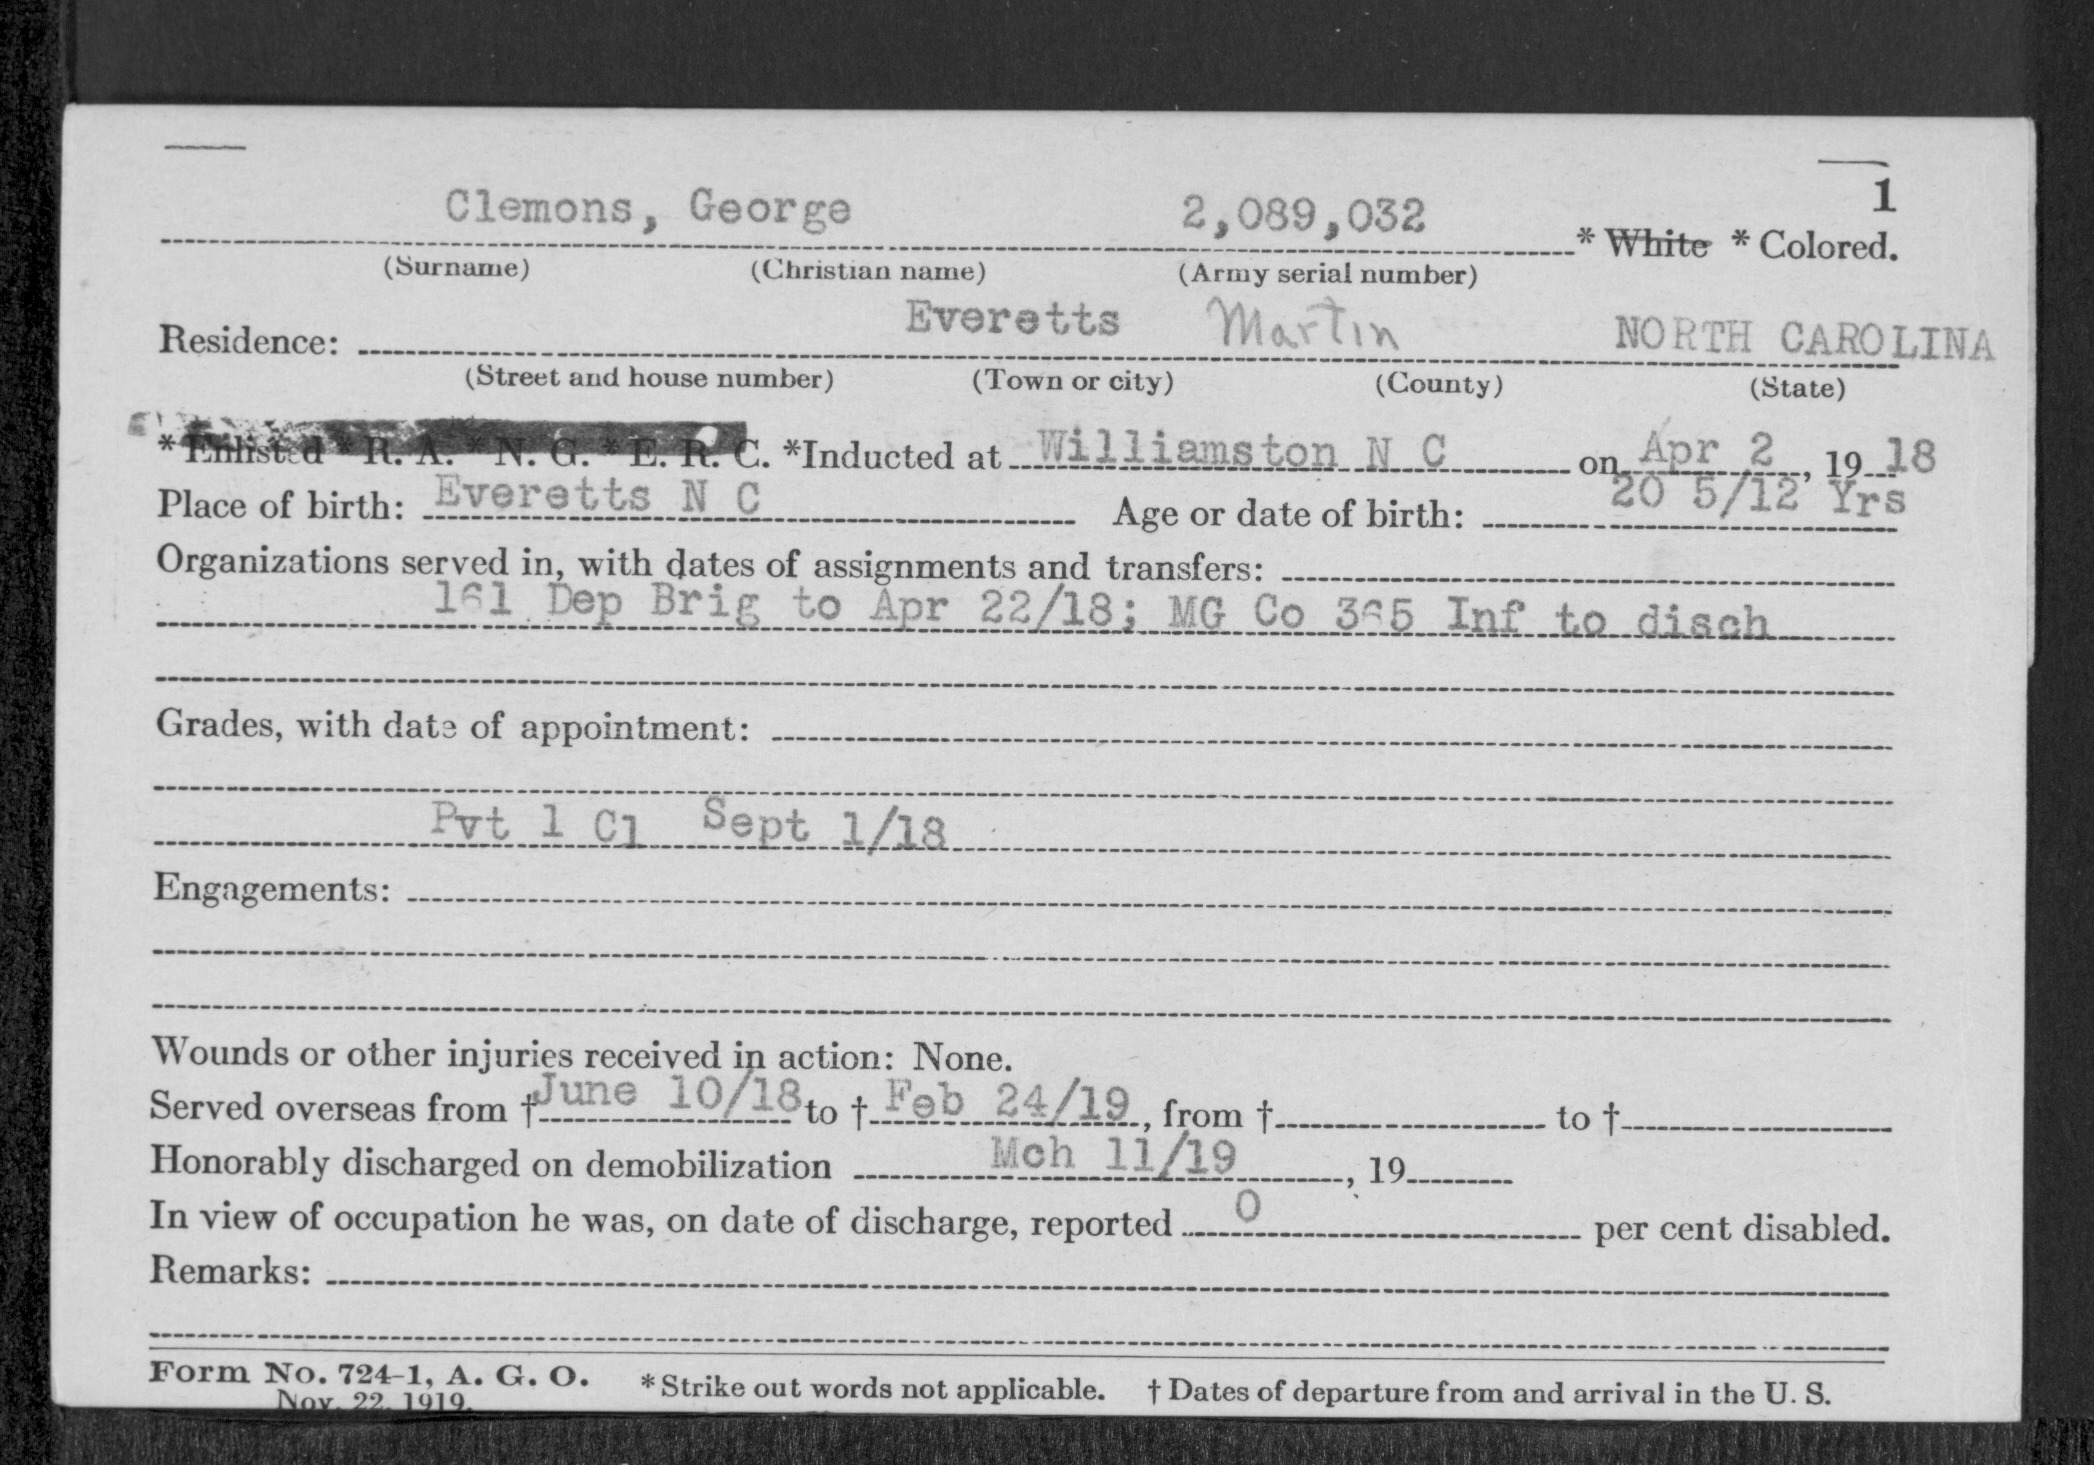 1
Clemons, George 2,089,032 * White * Colored.
(Surname) (Christian name) (Army serial number)
Residence: Everetts Martin NORTH CAROLINA
(Street and house number) (Town or city) (County) (State)
* Enlisted * R. A. * N. G. * E. R. C. *Inducted at Williamston N C on Apr 2, 19 18
Place of birth: Everetts N C Age or date of birth: 20 5/12 Yrs
Organizations served in, with dates of assignments and transfers:
161 Dep Brig to Apr 22/18; MG Co 365 Inf to disch
Grades, with date of appointment:
Pvt 1 Cl Sept 1/18
Engagements:
Wounds or other injuries received in action: None.
Served overseas from † June 10/18 to † Feb 24/19, from † to †
Honorably discharged on demobilization Mch 11/19, 19
In view of occupation he was, on date of discharge, reported 0 per cent disabled.
Remarks:
Form No. 724-1, A. G. O. * Strike out words not applicable. † Dates of departure from and arrival in the U. S.
Nov. 22, 1919.